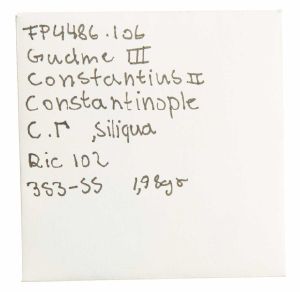 FP4486.106
Gudme III
Constantius II
Constantinople
C.Γ, Siliqua
Ric 102
353-55 1,98gr